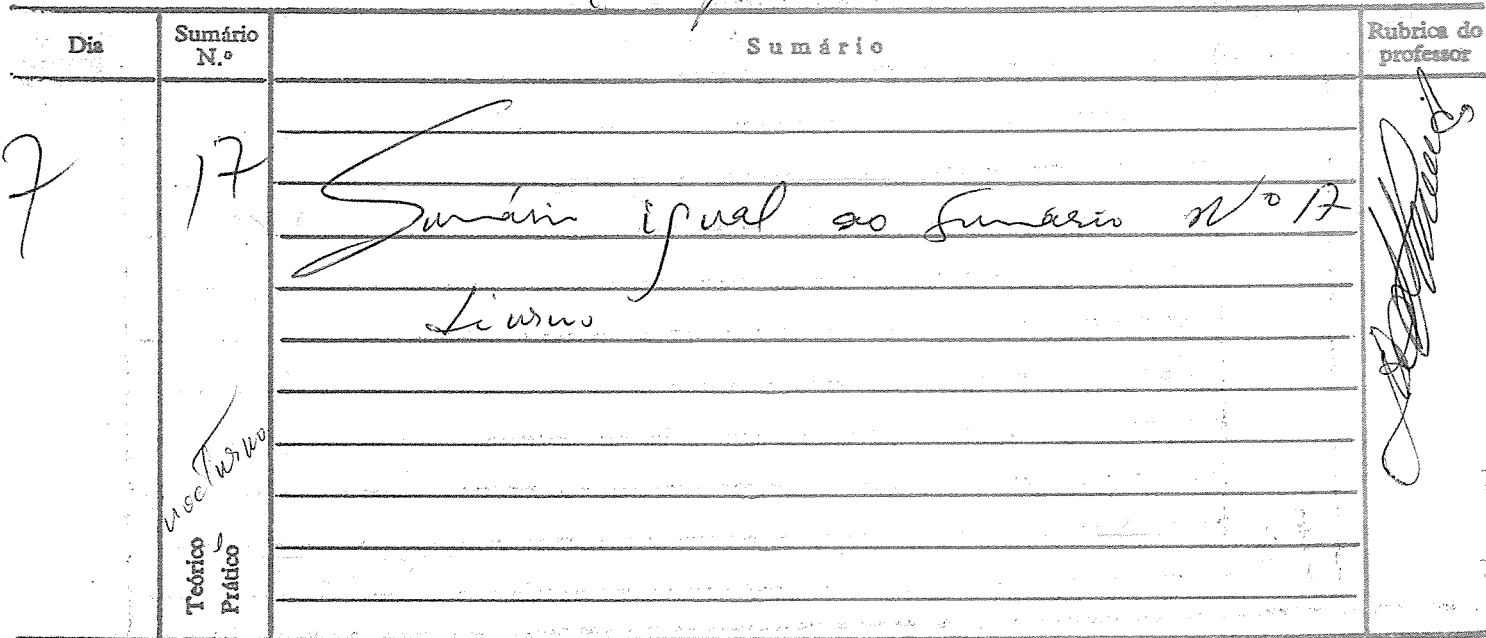 Dia
Sumário
N.º
Sumário
Rubrica do
professor
7
17
Sumário igual ao Sumário Nº 17
diurno
nocturno
Teórico
Prático